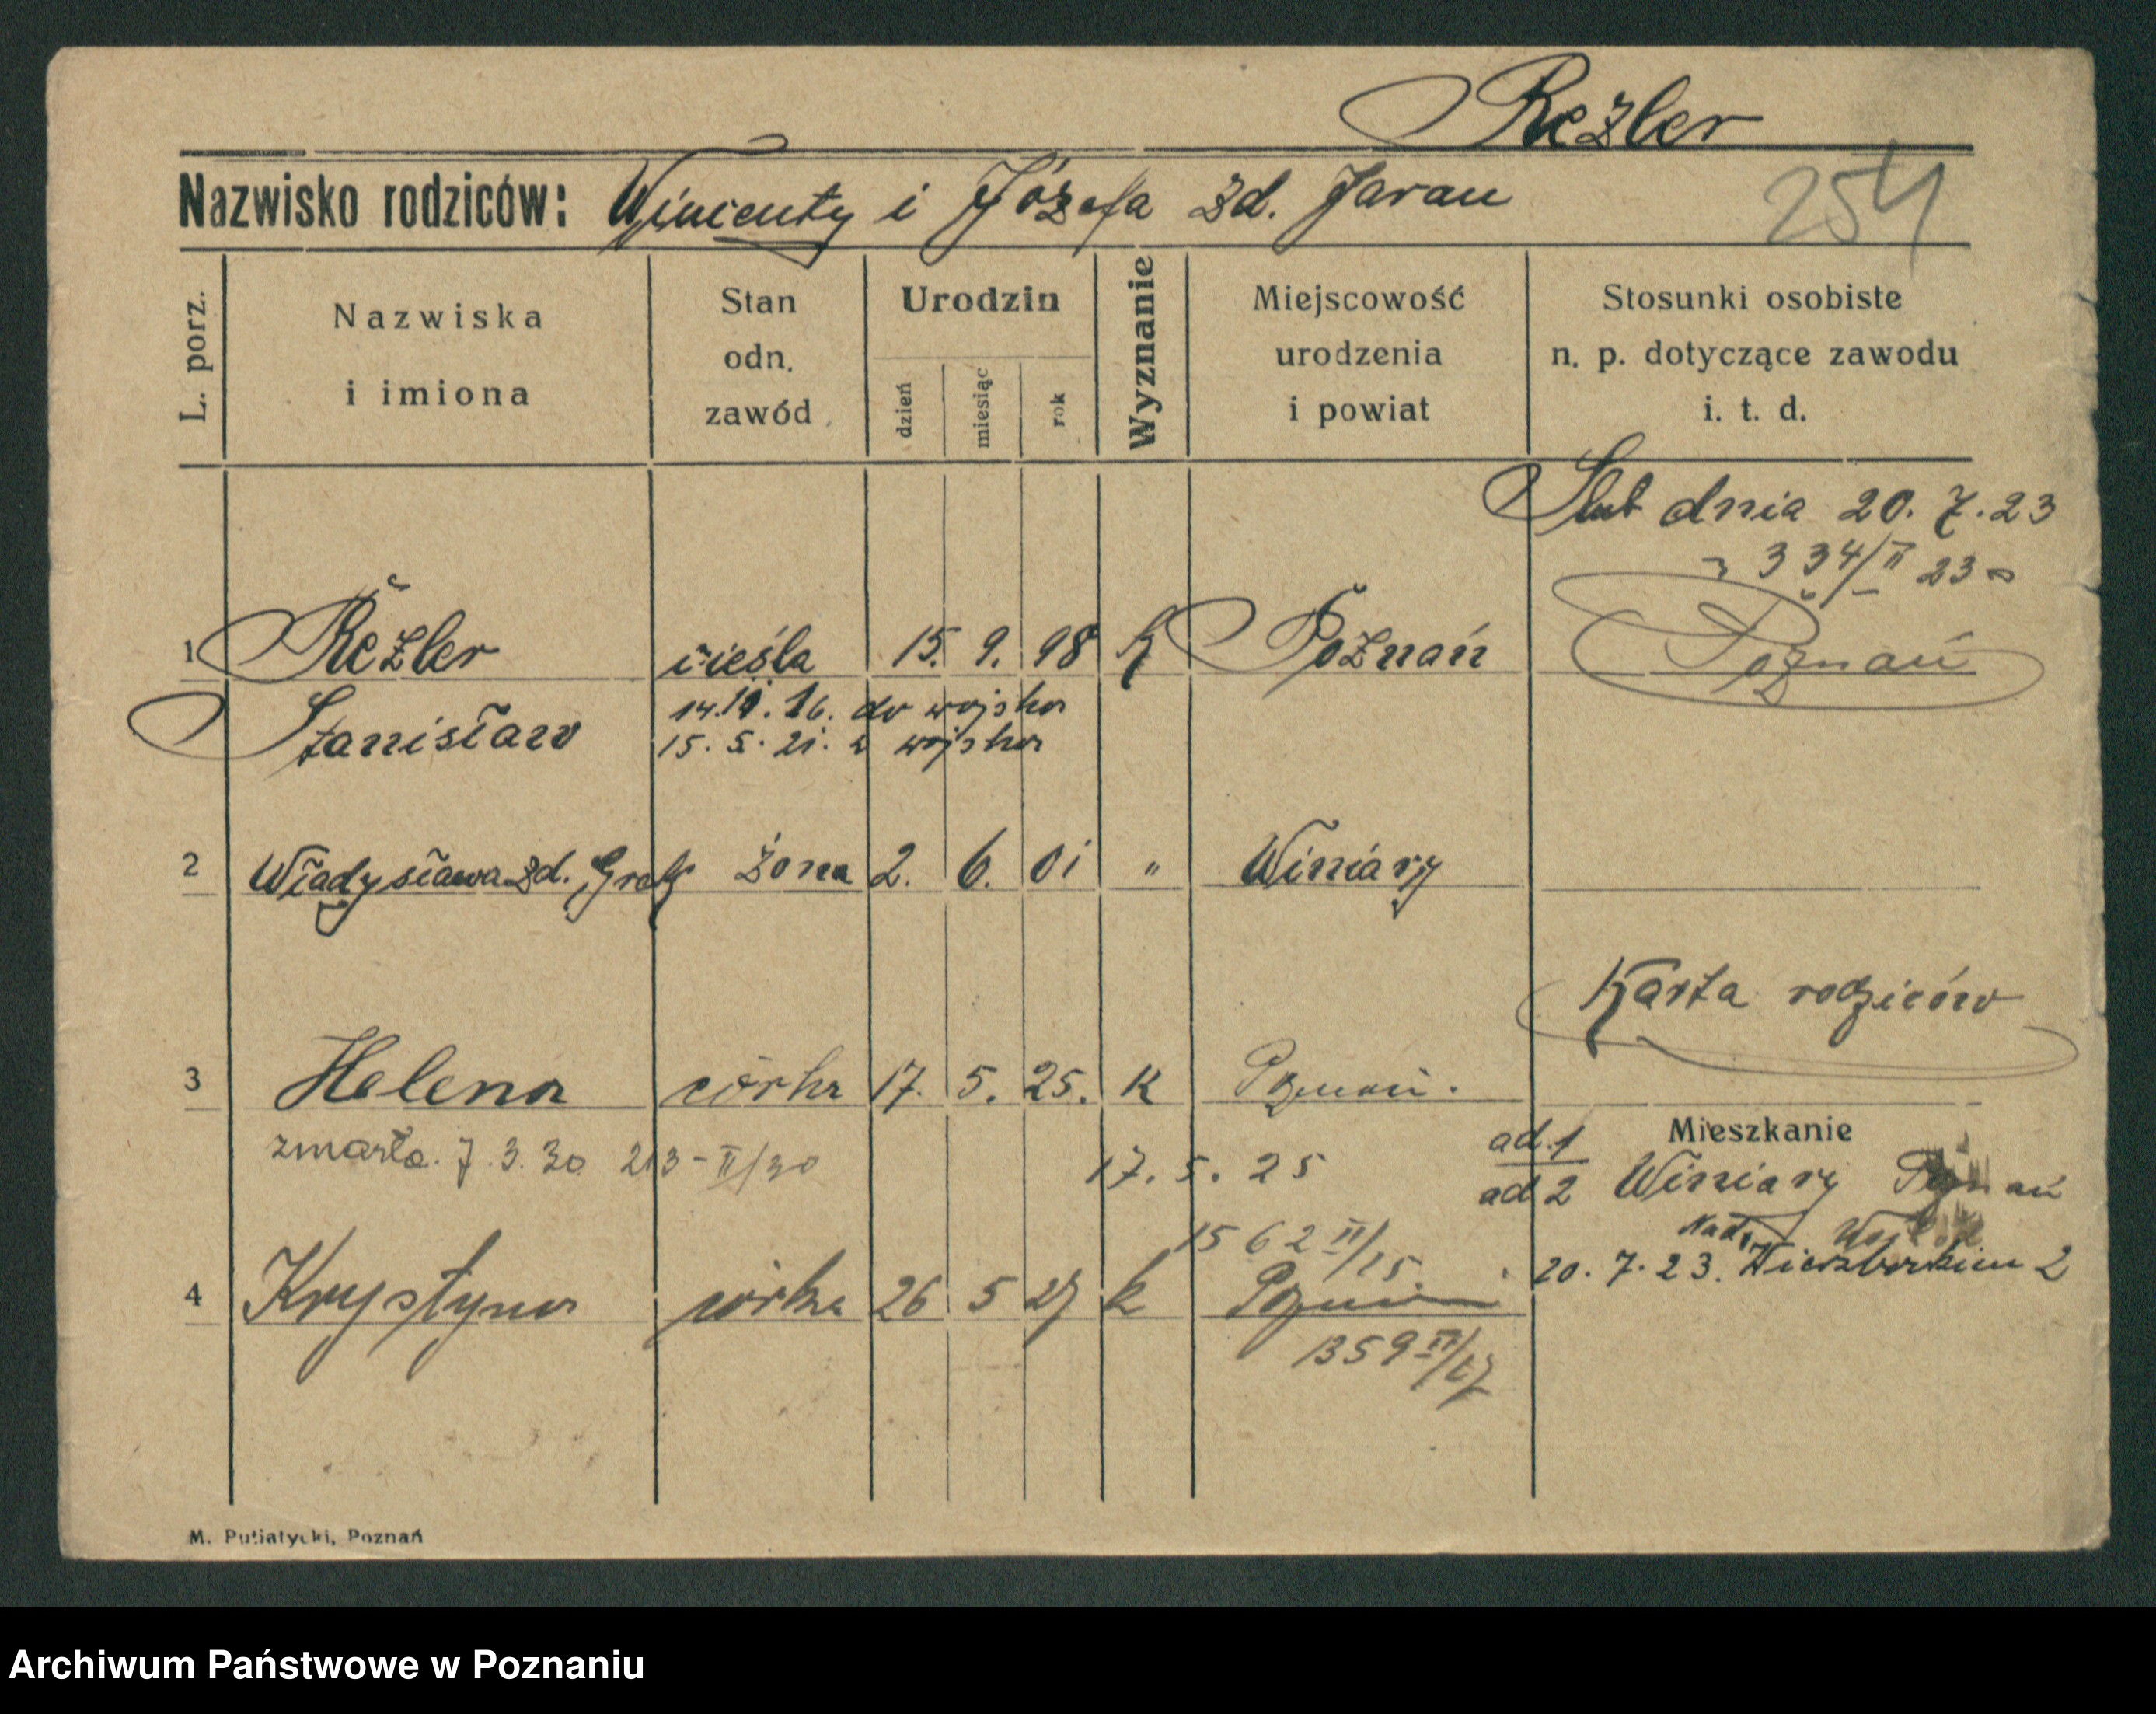 Režler
Nazwisko rodziców: Wincenty i Józefa zd. Jaran
254
L. porz.
Nazwiska
i imiona
Stan
odn.
zawód
Urodzin
dzień
miesiąc
rok
Wyznanie
Miejscowość
urodzenia
i powiat
Stosunki osobiste
n. p. dotyczące zawodu
i. t. d.
Slub dnia 20. 7. 23
334/II 23
1 Režler cieśla 15. 9. 98 K Poznań Poznań
Stanisław
do wojska
15. 5. 21. z wojska
2 Władysława zd. żona 2. 6. 01 " Winiary
Karta rodziców
3 Helena córka 17. 5. 25. K Poznań.
zmarła. 7. 3. 30 213-II/30
17. 5. 25
1562 II/25.
Mieszkanie
ad. 1
ad 2 Winiary Poznań
20. 7. 23. 2
4 Krystyna córka 26 5 27 k Poznań
1359 II/27
M. Putiatycki, Poznań
Archiwum Państwowe w Poznaniu